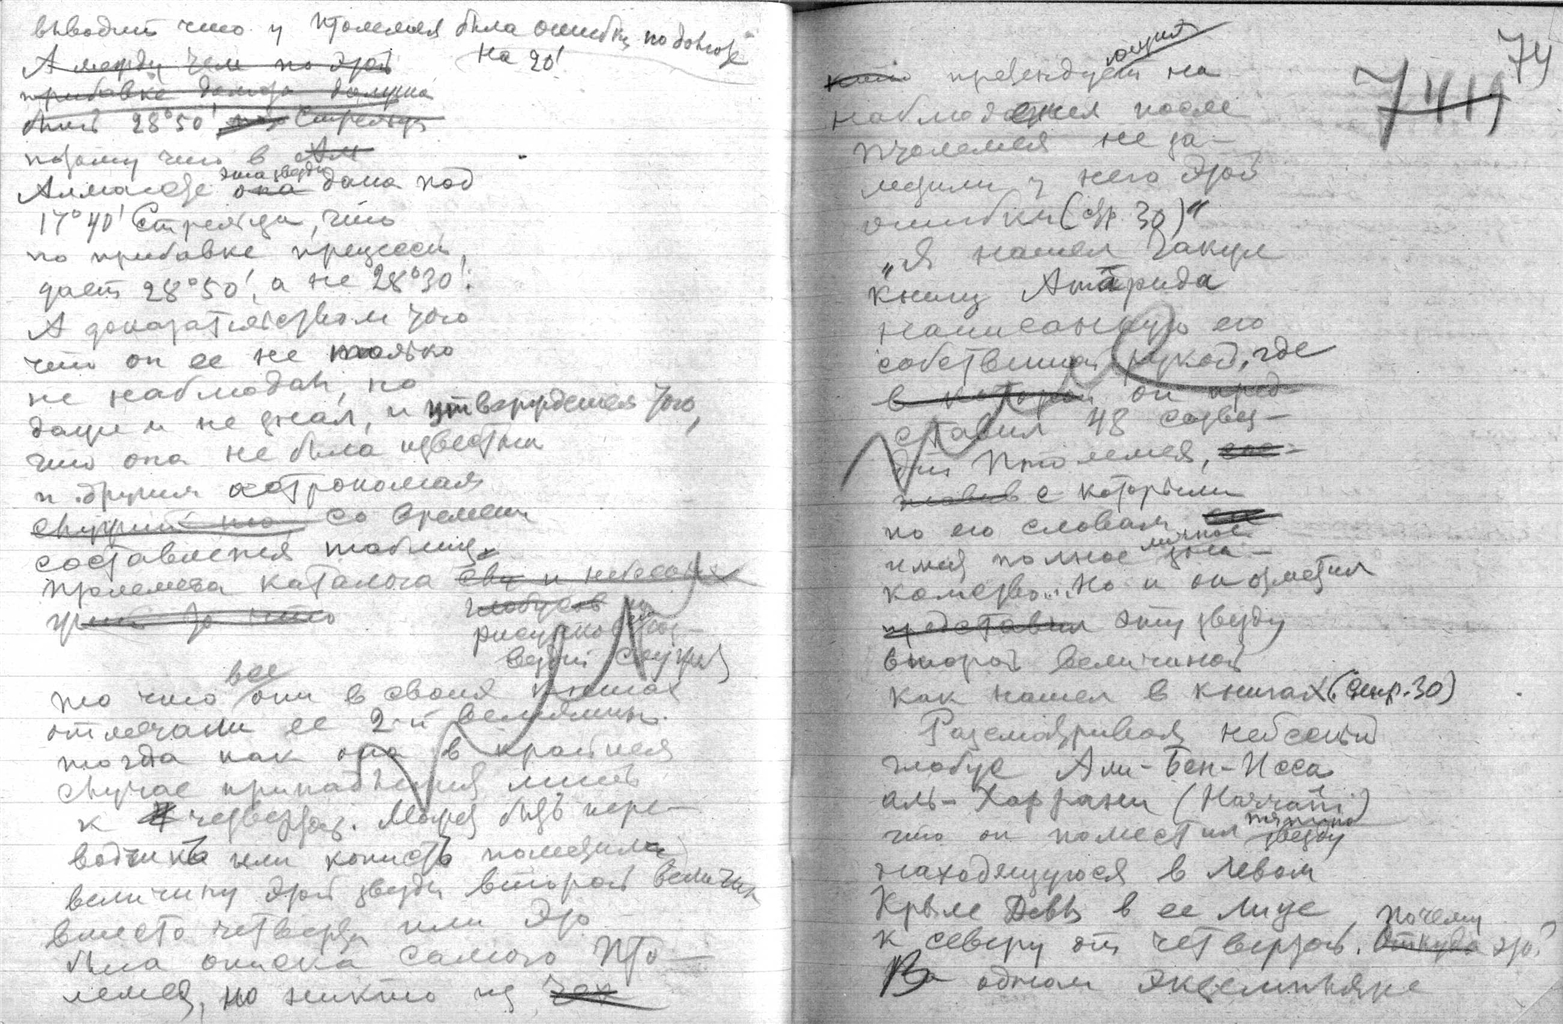 выводит что у Птолемея была ошибка по долготе
на 20'
А между тем по этой
прибавке долгота должна
быть 28°50' Стрельца
потому что в
Алмагесте эта звезда она дана под
17°40' Стрельца, что
по прибавке прецессии,
дает 28°50', а не 28°30'.
А доказательством того
что он ее не только
не наблюдал, но
даже и не знал, и утверждения того,
что она не была известна
и другим астрономам
со времени
составления таблиц
Птолемева каталога и небесных
глобусов и
рисунков
служит
то что все они в своих книгах
отмечали ее 2-й величины.
тогда как она в крайнем
случае принадлежит лишь
к четвертой. Может быть пере-
водчик или копиист пометили
величину этой звезды второй величины
вместо четвертой или это
была описка самого Пто-
лемея, но никто из
74
7419
претендующий на
наблюдения после
Птолемея не за-
метили у него этой
ошибки (стр. 30)"
"Я нашел также
книгу Атарида
написанную его
собственной рукой, где
в которой он пред-
ставил 48 созвез-
дий Птолемея,
с которыми
по его словам
имел полное личное зна-
комство... Но и он отметил
представил эту звезду
второй величиной
как нашел в книгах (стр. 30)
Рассматривая небесный
глобус Али-Бен-Исса
аль-Харрани
что он поместил звезду
находящуюся в левом
Крыле Девы в ее лице
к северу от четвертой. Почему Откуда это?
В одном экземпляре